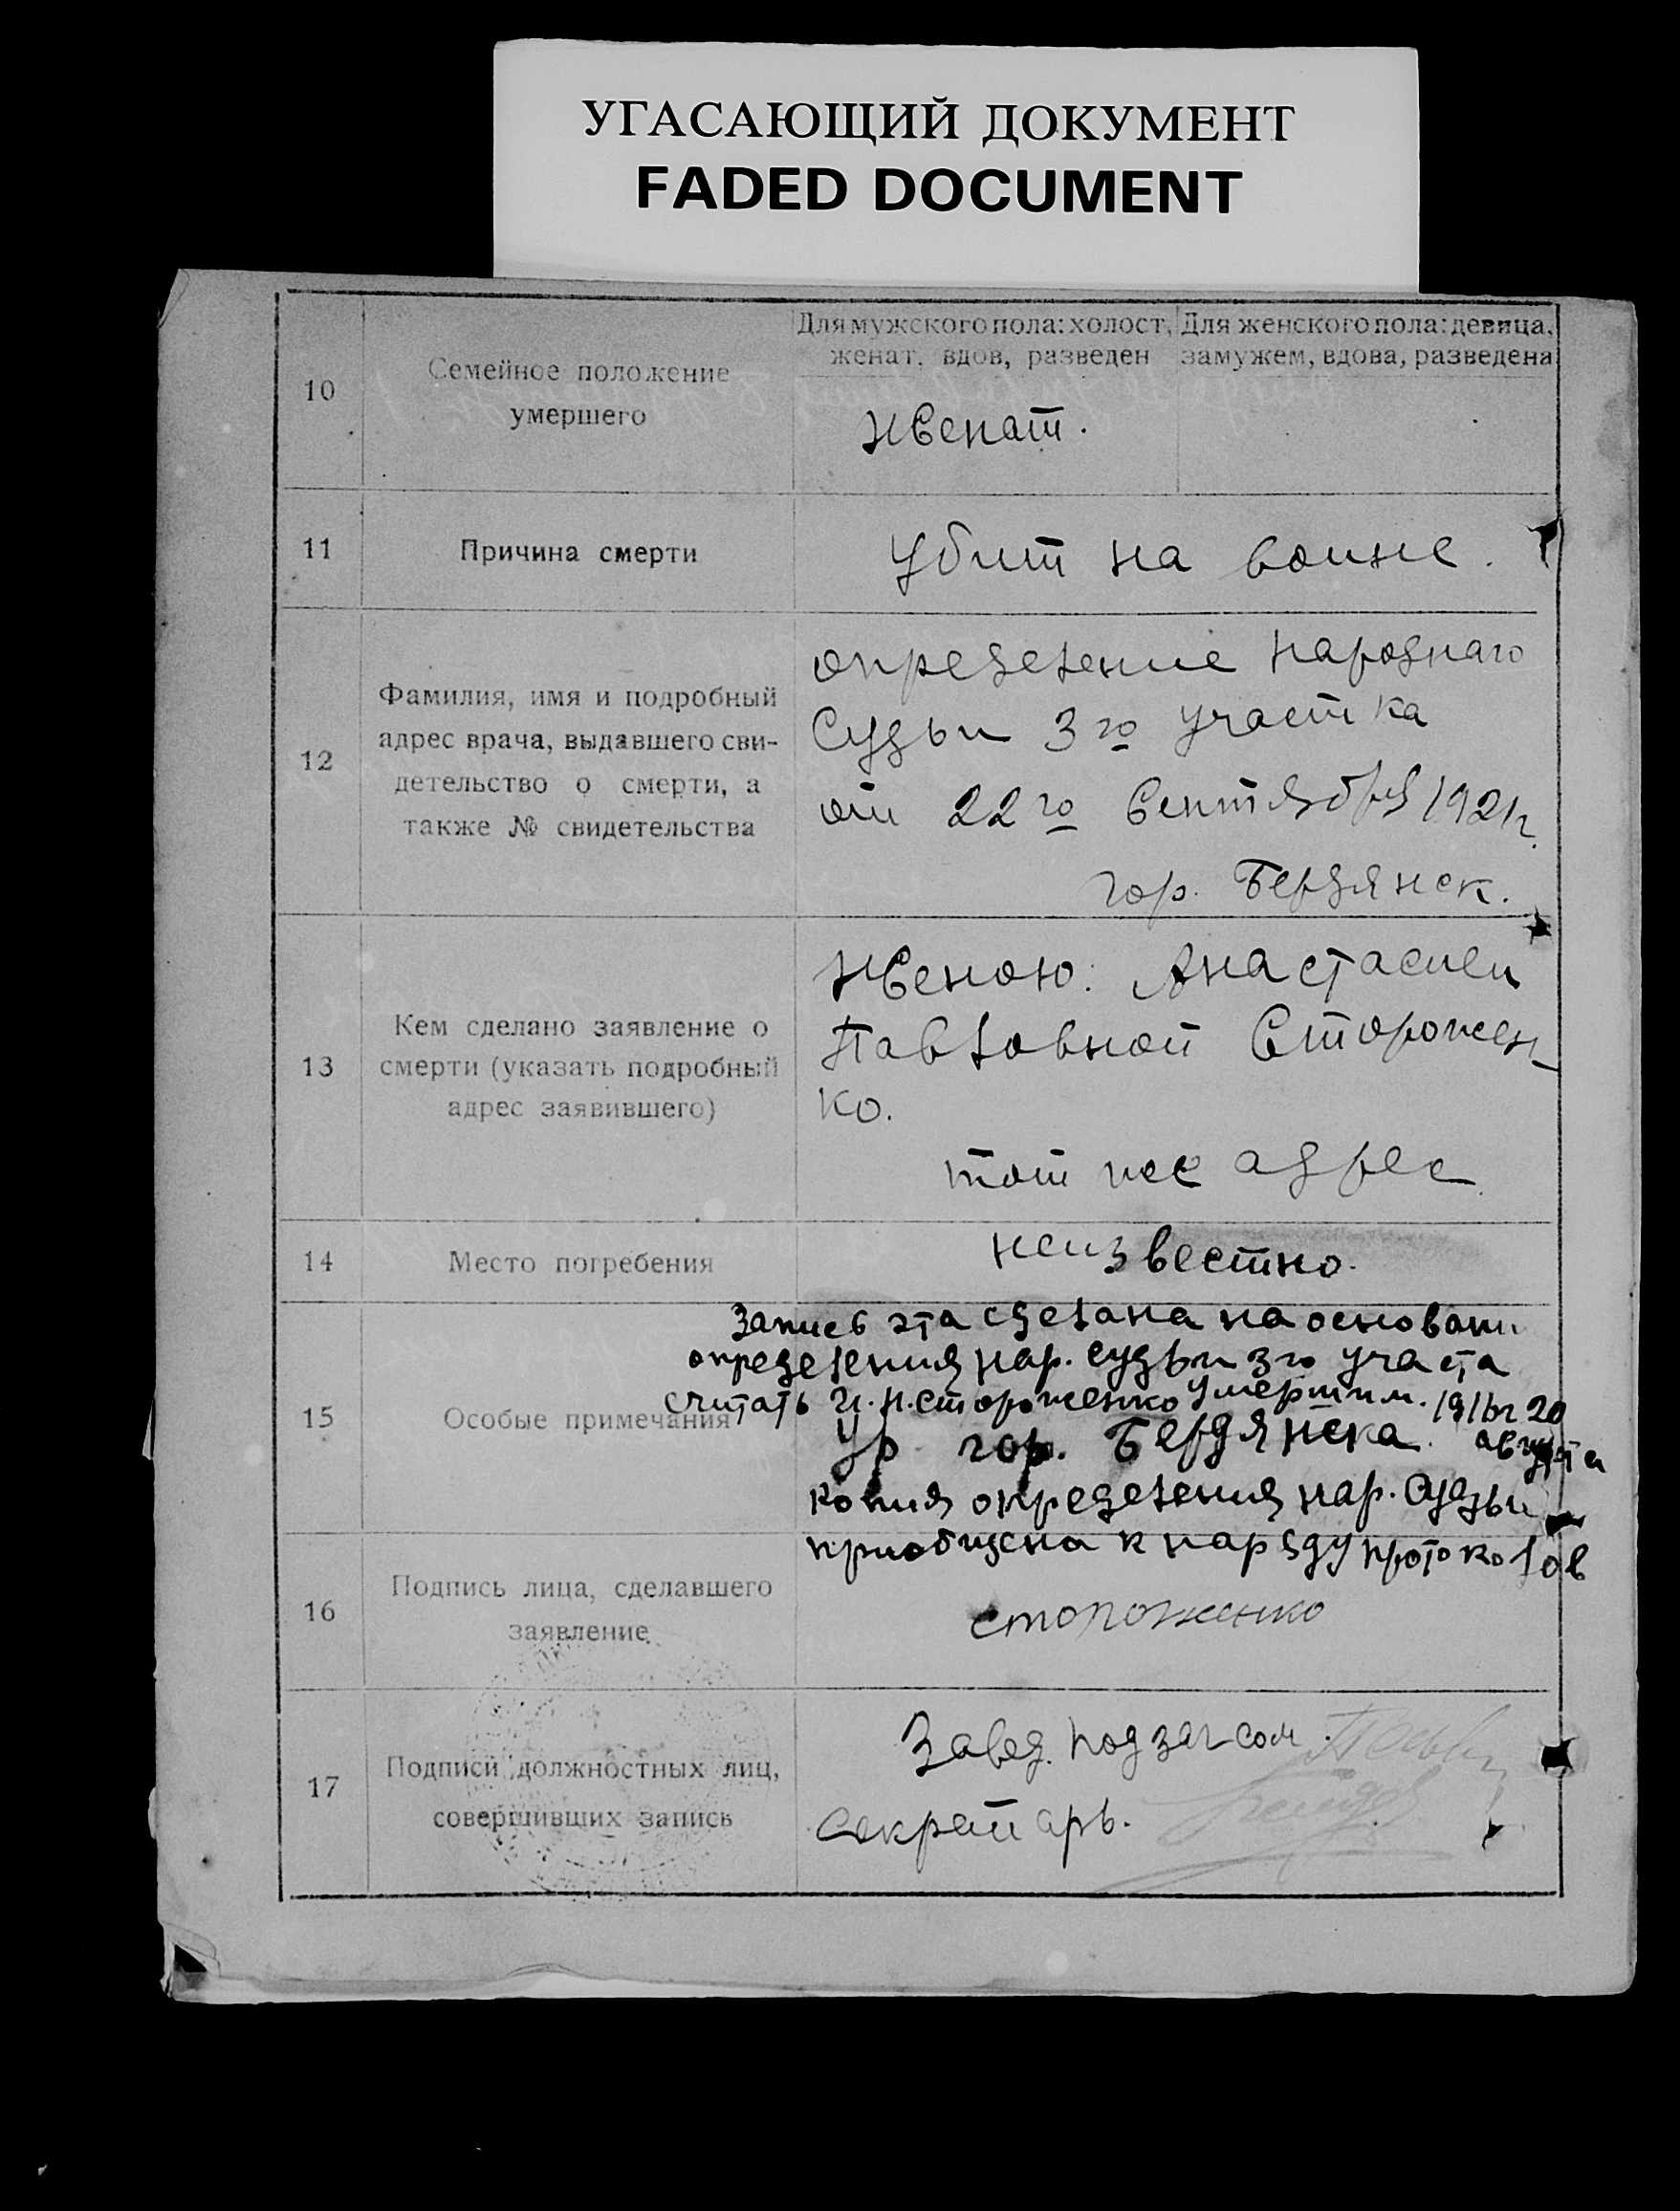 УГАСАЮЩИЙ ДОКУМЕНТ
FADED DOCUMENT
10
Семейное положение
умершего
Для мужского пола: холост,
женат, вдов, разведен
Для женского пола: девица,
замужем, вдова, разведена
женат.
11
Причина смерти
убит на воине.
12
Фамилия, имя и подробный
адрес врача, выдавшего сви-
детельство о смерти, а
также № свидетельства
определение народнаго
Судьи 3го участка
от 22го Сентября 1921г.
гор. Бердянск.
13
Кем сделано заявление о
смерти (указать подробный
адрес заявившего)
женою: Анастасиеи
Павловной Сторожен-
ко.
тот же адрес
14
Место погребения
неизвестно.
15
Особые примечания
Запись эта сделана на основани
определения нар. судьи 3го участа
считать И.Н. Стороженко умершим. 1916г 20
августа
гор. Бердянска.
копия определения нар. Судьи
приобщена к наряду протоколов
16
Подпись лица, сделавшего
заявление
стопоженко
17
Подписи должностных лиц,
совершивших запись
Завед. подзагсом.
секретарь.